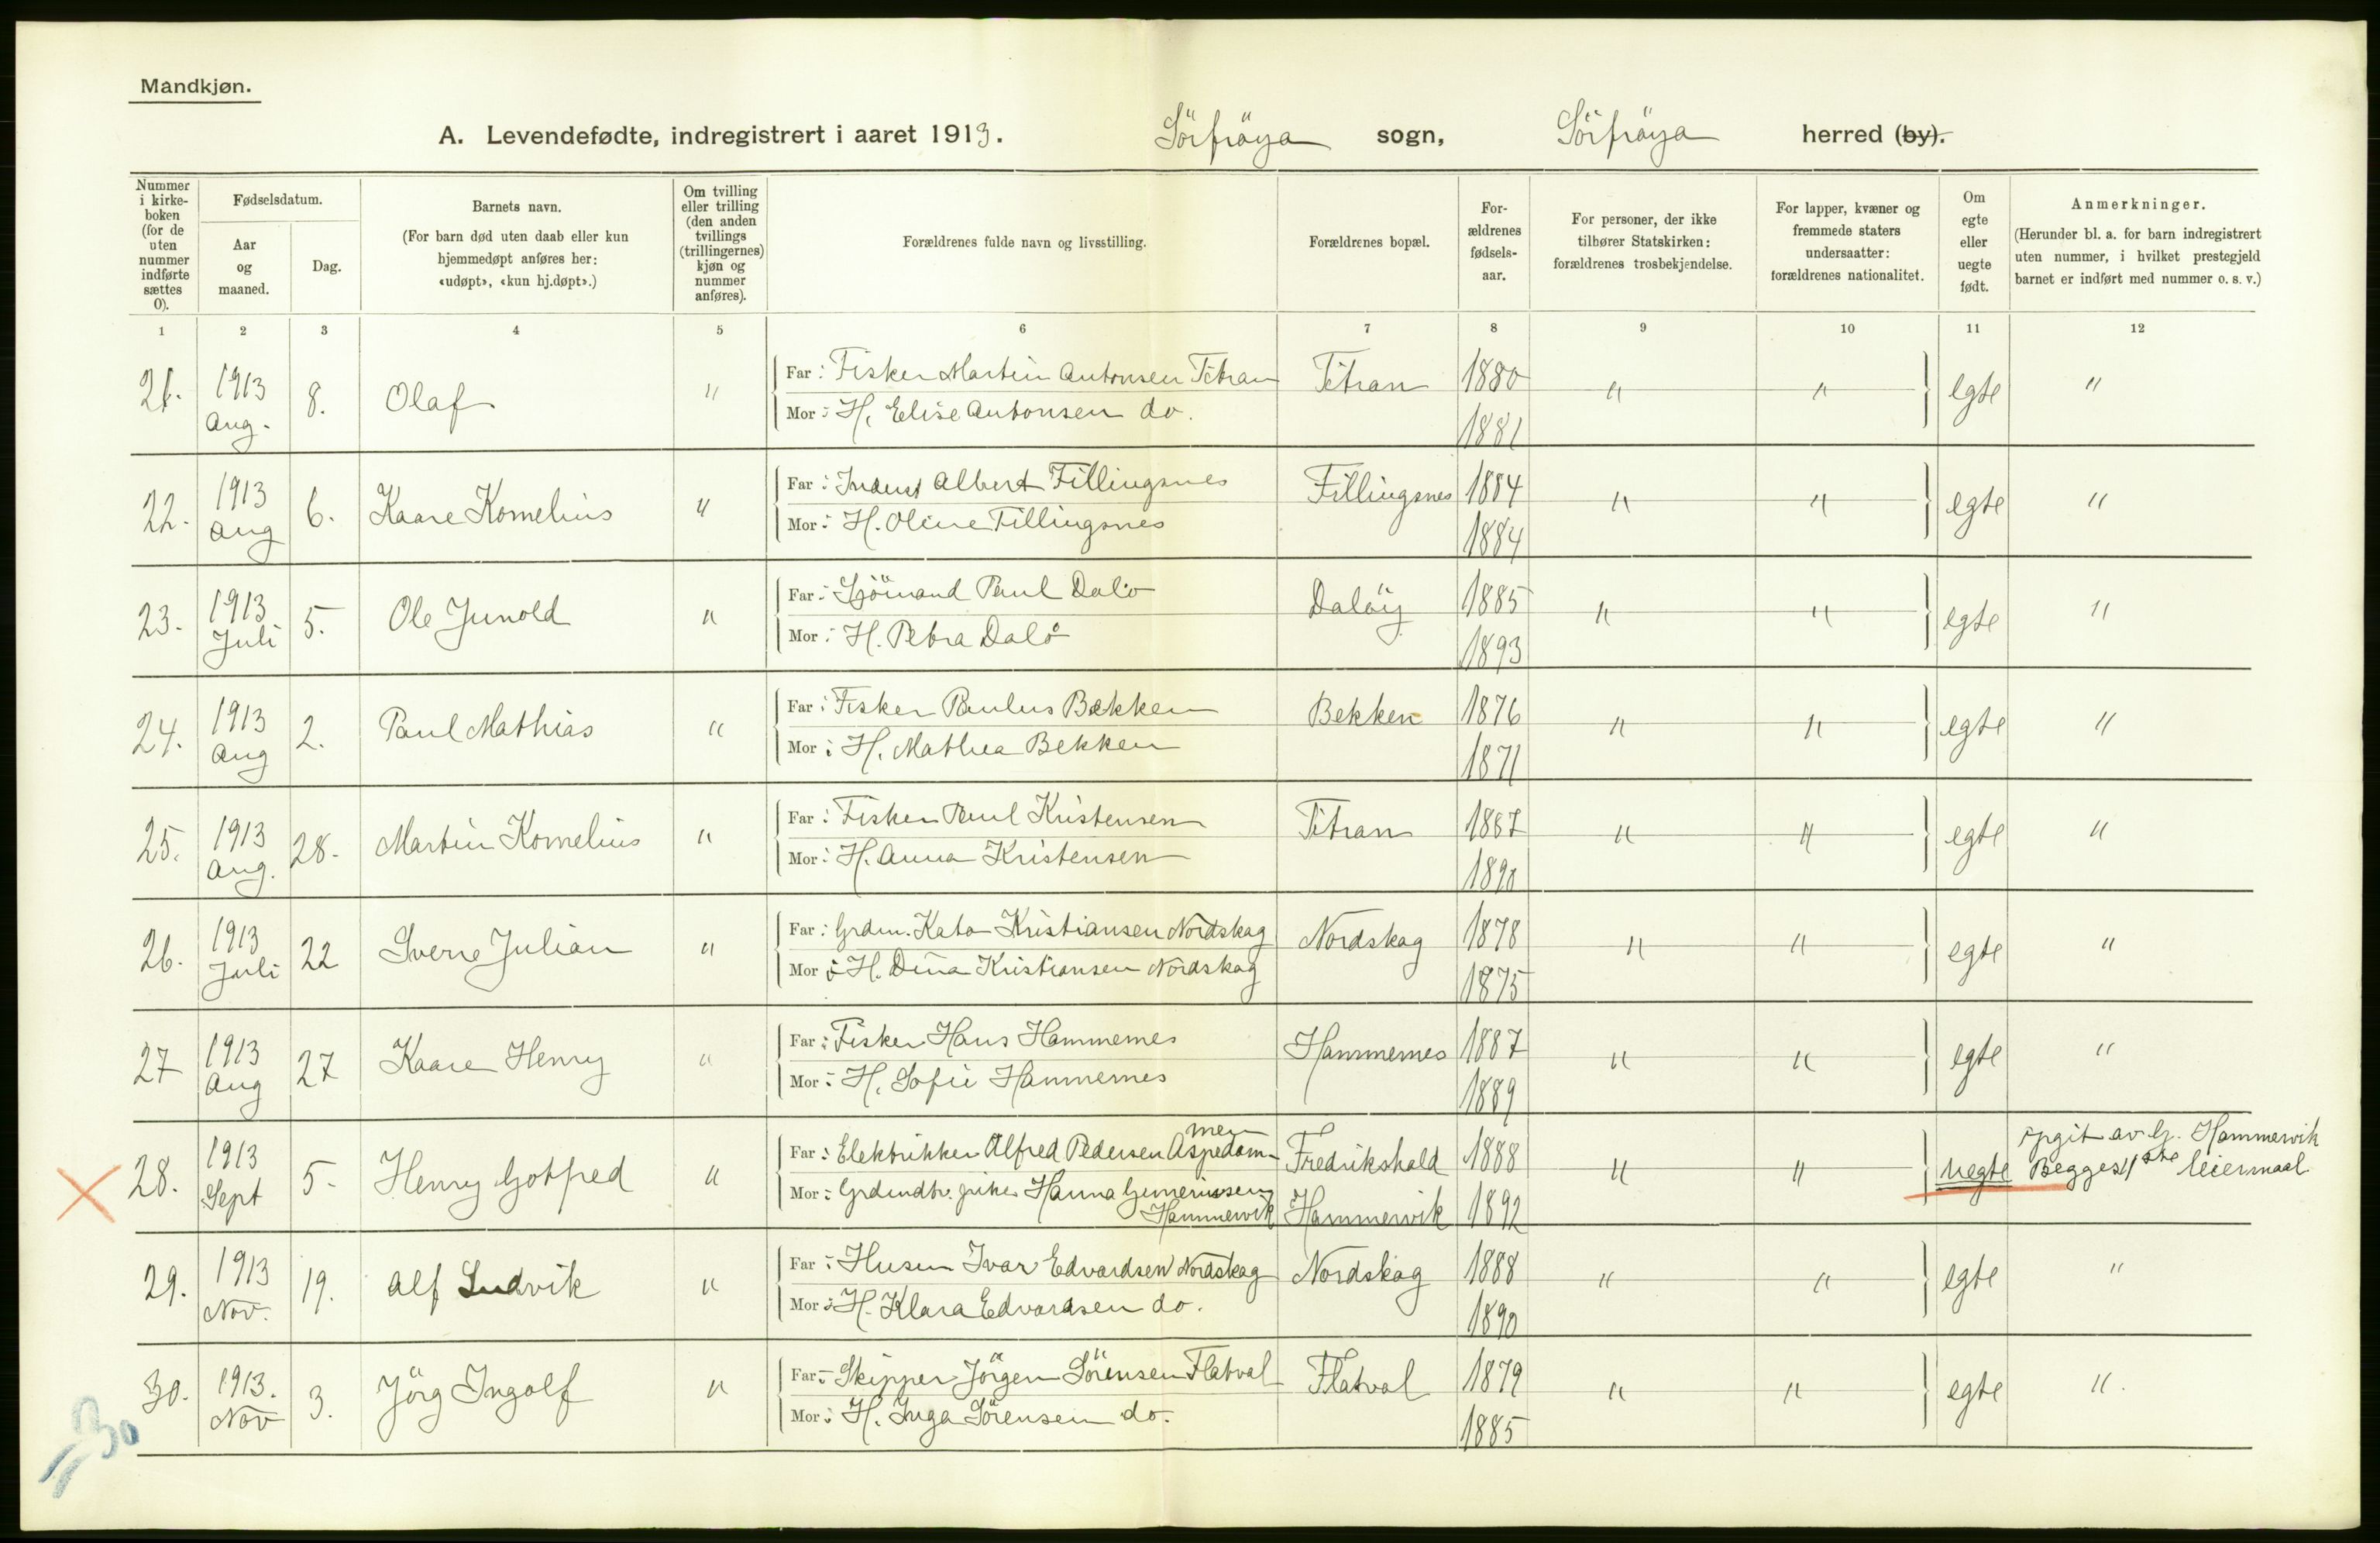 Mandkjøn.
A. Levendefødte, indregistrert i aaret 1913. Sörfröya sogn, Sörfröya herred (by).
Nummer i kirke-boken (for de uten nummer indførte sættes 0).
Fødselsdatum.
Aar og maaned.
Dag.
Barnets navn.
(For barn død uten daab eller kun hjemmedøpt anføres her: «udøpt», «kun hj.døpt».)
Om tvilling eller trilling (den anden tvillings (trillingernes) kjøn og nummer anføres).
Forældrenes fulde navn og livsstilling.
Forældrenes bopæl.
For-ældrenes fødsels-aar.
For personer, der ikke tilhører Statskirken: forældrenes trosbekjendelse.
For lapper, kvæner og fremmede staters undersaatter: forældrenes nationalitet.
Om egte eller uegte født.
Anmerkninger.
(Herunder bl. a. for barn indregistrert uten nummer, i hvilket prestegjeld barnet er indført med nummer o. s. v.)
1 2 3 4 5 6 7 8 9 10 11 12
21. 1913 Aug. 8. Olaf " Far: Fisker Martin Antonsen Titran Titran 1880 " " egte "
Mor: H. Elise Antonsen do. 1881
22. 1913 Aug 6. Kaare Kornelius " Far: Indust Albert Fillingsnes Fillingsnes 1884 " " egte "
Mor: H. Oline Fillingsnes 1884
23. 1913 Juli 5. Ole Junold " Far: Sjömand Paul Dalö Dalöy 1885 " " egte "
Mor: H. Petra Dalö 1893
24. 1913 Aug 2. Paul Mathias " Far: Fisker Paulus Bekken Bekken 1876 " " egte "
Mor: H. Mathea Bekken 1871
25. 1913 Aug. 28. Martin Kornelius " Far: Fisker Paul Kristensen Titran 1887 " " egte "
Mor: H. Anna Kristensen 1890
26. 1913 Juli 22 Sverre Julian " Far: Grdm. Kato Kristiansen Nordskag Nordskag 1878 " " egte "
Mor: H. Dina Kristiansen Nordskag 1875
27 1913 Aug 27 Kaare Henry " Far: Fisker Hans Hammernes Hammernes 1887 " " egte "
Mor: H. Sofie Hammernes 1889
28. 1913 Sept 5. Henry Gotfred " Far: Elektrikker Alfred Pedersen Aspedammen Fredrikshald 1888 " " uegte opgit av G. Hammervik
Mor: Grdmdtr. pike Hanna Hammervik Hammervik 1892 Begges 1ste leiermaal
29. 1913 Nov. 19. Alf Ludvik " Far: Husm Ivar Edvardsen Nordskag Nordskag 1888 " " egte "
Mor: H. Klara Edvardsen do. 1890
30. 1913. Nov 3. Jörg Ingolf " Far: Skipper Jörgen Sörensen Flatval Flatval 1879 " " egte "
Mor: H. Inga Sörensen do. 1885
30